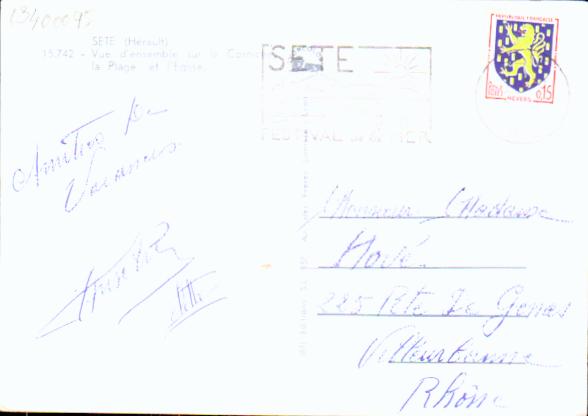 13400095
SETE (Hérault)
15.742 - Vue d'ensemble sur la Corniche
la Plage et l'Eglise.
SETE
FESTIVAL DE LA MER
REPUBLIQUE FRANÇAISE
POSTES
0,15
NEVERS
Amitiés de
Vacances.
Monsieur Madame
Hové.
225 Rte de Genas
Villeurbanne
Rhône